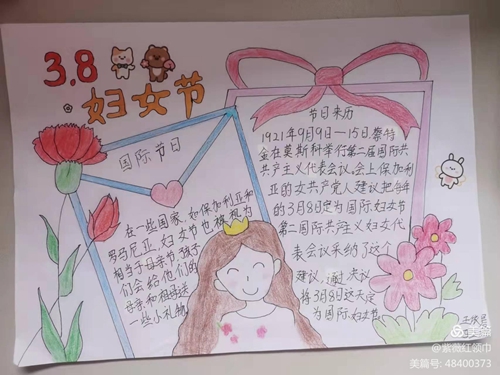 3.8
妇女节
国际节日
在一些国家,如保加利亚和
罗马尼亚,妇女节也被视为
相当于母亲节,孩子
们会给他们的
母亲和祖母送
一些小礼物
节日来历
1921年9月9日—15日蔡特
金在莫斯科举行第二届国际共
共产主义代表会议,会上保加利
亚的女共产党人建议把每年
的3月8日定为国际妇女节
第二国际共产主义妇女代
表会议采纳了这个
建议,通过决议
将3月8日这天定
为国际妇女节
美篇
@紫薇红领巾
美篇号: 48400373